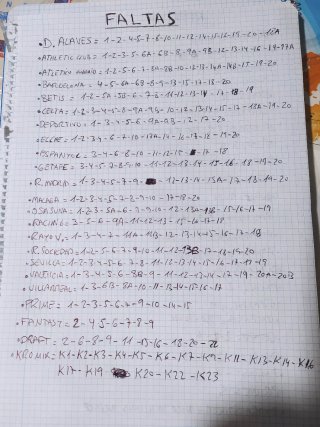 FALTAS
• D. ALAVES = 1-2-4-5-7-8-10-11-12-14-15-16-19-20-18A
• ATHLETIC CLUB = 1-2-3-5-6A-6B-8-9A-9B-12-13-14-16-19-17A
• ATLETICO MADRID = 1-2-5-6-7-8A-8B-10-12-13-14A-14B-15-19-20
• BARCELONA = 4-5-6A-6B-8-9-13-15-17-18-20
• BETIS = 1-2-5A-5B-6-7-8-11-12-13-14-17-18-19
• CELTA = 1-2-3-4-5-8-9A-9B-10-12-13-14-15-17-18A-19-20
• DEPORTIVO = 1-2-3-4-5-6-9A-9B-12-17-20
• ELCHE = 1-2-3-4-6-7-10-13A-14-16-17-18-19-20
• ESPANYOL = 3-4-6-8-10-11-12-15-17-18
• GETAFE = 3-4-5-7-8-9-10-11-12-13-14-15-16-18-19-20
• R. MADRID = 1-3-4-5-7-9-12-13-14-15A-17-18-19-20
• MALAGA = 1-2-3-4-5-7-8-9-10-17-18-20
• OSASUNA = 1-2-3-5A-6-8-9-11-12-13A-13B-15-16-17-19
• RACING = 3-5-8-9A-11-12-13-15-16-17-18
• RAYO V. = 1-3-4-7-11A-11B-12-13-14-15-16-17-18
• R. SOCIEDAD = 1-2-5-6-7-9-10-11-12-13B-17-18-19-20
• SEVILLA = 1-2-3-4-5-7-8-11-12-13-14-15-16-17-18-19
• VALENCIA = 1-3-4-5-6-8B-9-11-12-13-14-17-19-20A-20B
• VILLARREAL = 1-3-6B-8A-10-11-13-14-15-16-17
• PRIME = 1-2-3-5-6-7-9-10-14-15
• FANTASY = 2-4-5-6-7-8-9
• DRAFT = 2-6-8-9-11-15-16-18-20-22
• KROMIX = K1-K2-K3-K4-K5-K6-K7-K9-K11-K13-K14-K16
K17-K19 K20-K22-K23